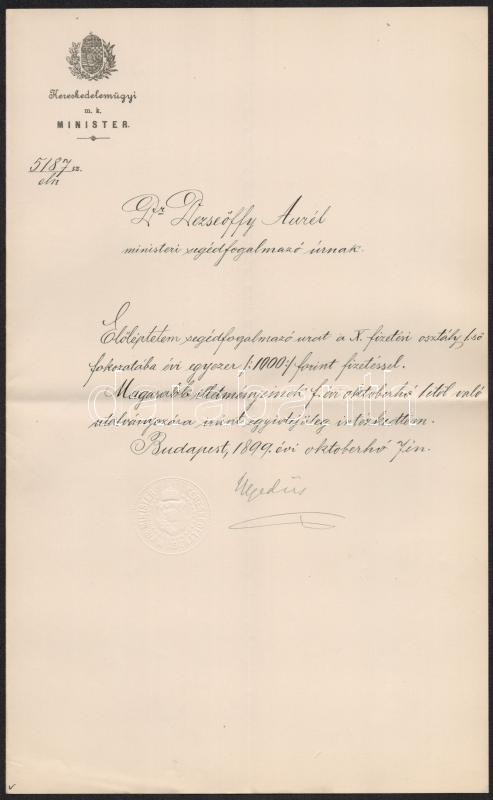 Kereskedelemügyi
m. k.
MINISTER.
5187 sz.
eln
Dr Dezseőffy Aurél
ministeri segédfogalmazó úrnak.
Előléptetem segédfogalmazó urat a X. fizetési osztály 1ső
fokozatába évi egyezer /:1000:/ forint fizetéssel.
Magasabb illetményeinek f. évi októberhó 1től való
utalványozása iránt egyidejűleg intézkedtem.
Budapest, 1899. évi oktoberhó 7én.
Hegedüs
Darabanth